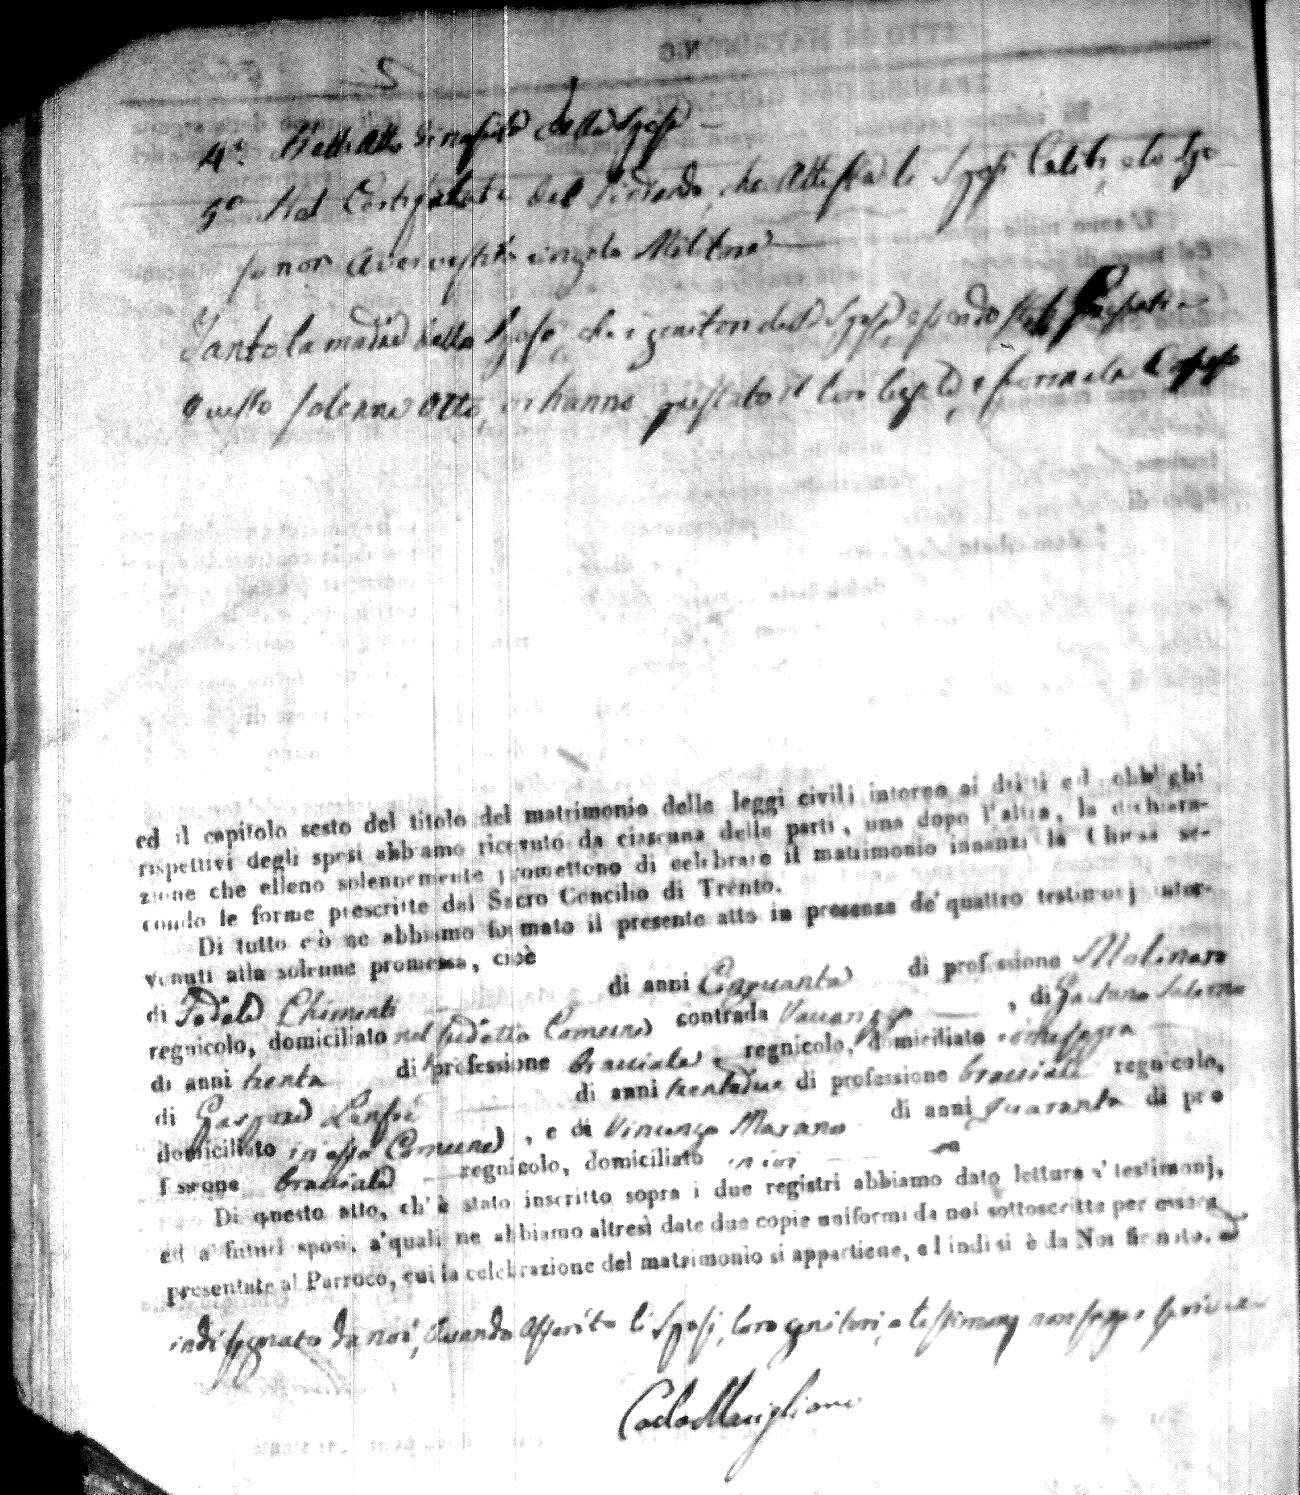 4°. Dell'Atto di nascita della Sposa
5° Nel Certificato del Sindaco, che Attesta li Sposi Celibi, e lo Spo
so non aver vestito cingolo Militare
Tanto la madre dello Sposo, che i genitori della Sposa, essendo stati presenti a
questo solenne Atto, vi hanno prestato il loro legale, e formale Consenso
ed il capitolo sesto del titolo del matrimonio delle leggi civili intorno ai dritti ed obblighi
rispettivi degli sposi abbiamo ricevuto da ciascuna delle parti, una dopo l'altra, la dichiara-
zione che elleno solennemente promettono di celebrare il matrimonio innanzi la Chiesa se-
condo le forme prescritte dal Sacro Concilio di Trento.
Di tutto ciò ne abbiamo formato il presente atto in presenza de' quattro testimonj inter-
venuti alla solenne promessa, cioè
di Fedele Chimenti di anni Cinquanta di professione Molinaro
regnicolo, domiciliato nel sudetto Comune contrada , di Gaetano Salerno
di anni trenta di professione bracciale, regnicolo, domiciliato
di Gaspare di anni trentadue di professione bracciale regnicolo,
domiciliato in esso Comune, e di Vincenzo Marano di anni quaranta di pro
fessione bracciale regnicolo, domiciliato ivi
Di questo atto, ch' è stato inscritto sopra i due registri abbiamo dato lettura a' testimonj,
ed a' futuri sposi, a' quali ne abbiamo altresì date due copie uniformi da noi sottoscritte per essere
presentate al Parroco, cui la celebrazione del matrimonio si appartiene, e l indi si è da Noi firmato. E
indi segnato da noi, avendo asserito li Sposi, loro genitori, e testimonj non saper scrivere
Carlo Marigliano